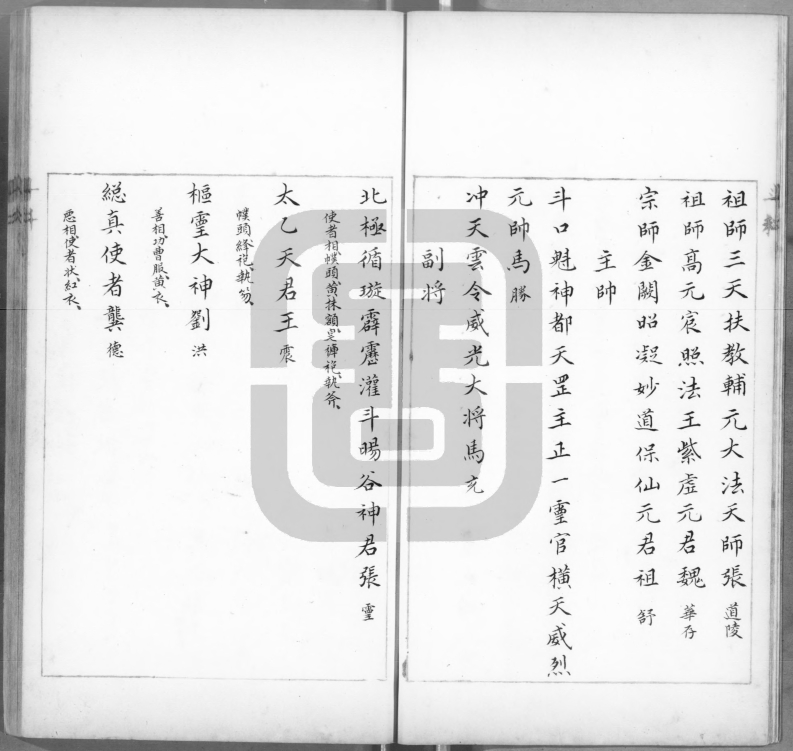 祖師三天扶教輔元大法天師張道陵
祖師高元宸照法王紫虛元君魏華存
宗師金闕昭凝妙道保仙元君祖舒
主帥
斗口魁神都天罡主正一靈官橫天威烈
元帥馬勝
冲天雲令威光大將馬充
副將
北極循璇霹靂灌斗暘谷神君張靈
使者相幞頭黃抹額皂褌袍執斧
太乙天君王震
幞頭絳袍執笏
樞靈大神劉洪
善相功曹服黃衣
總真使者龔德
惡相使者狀紅衣